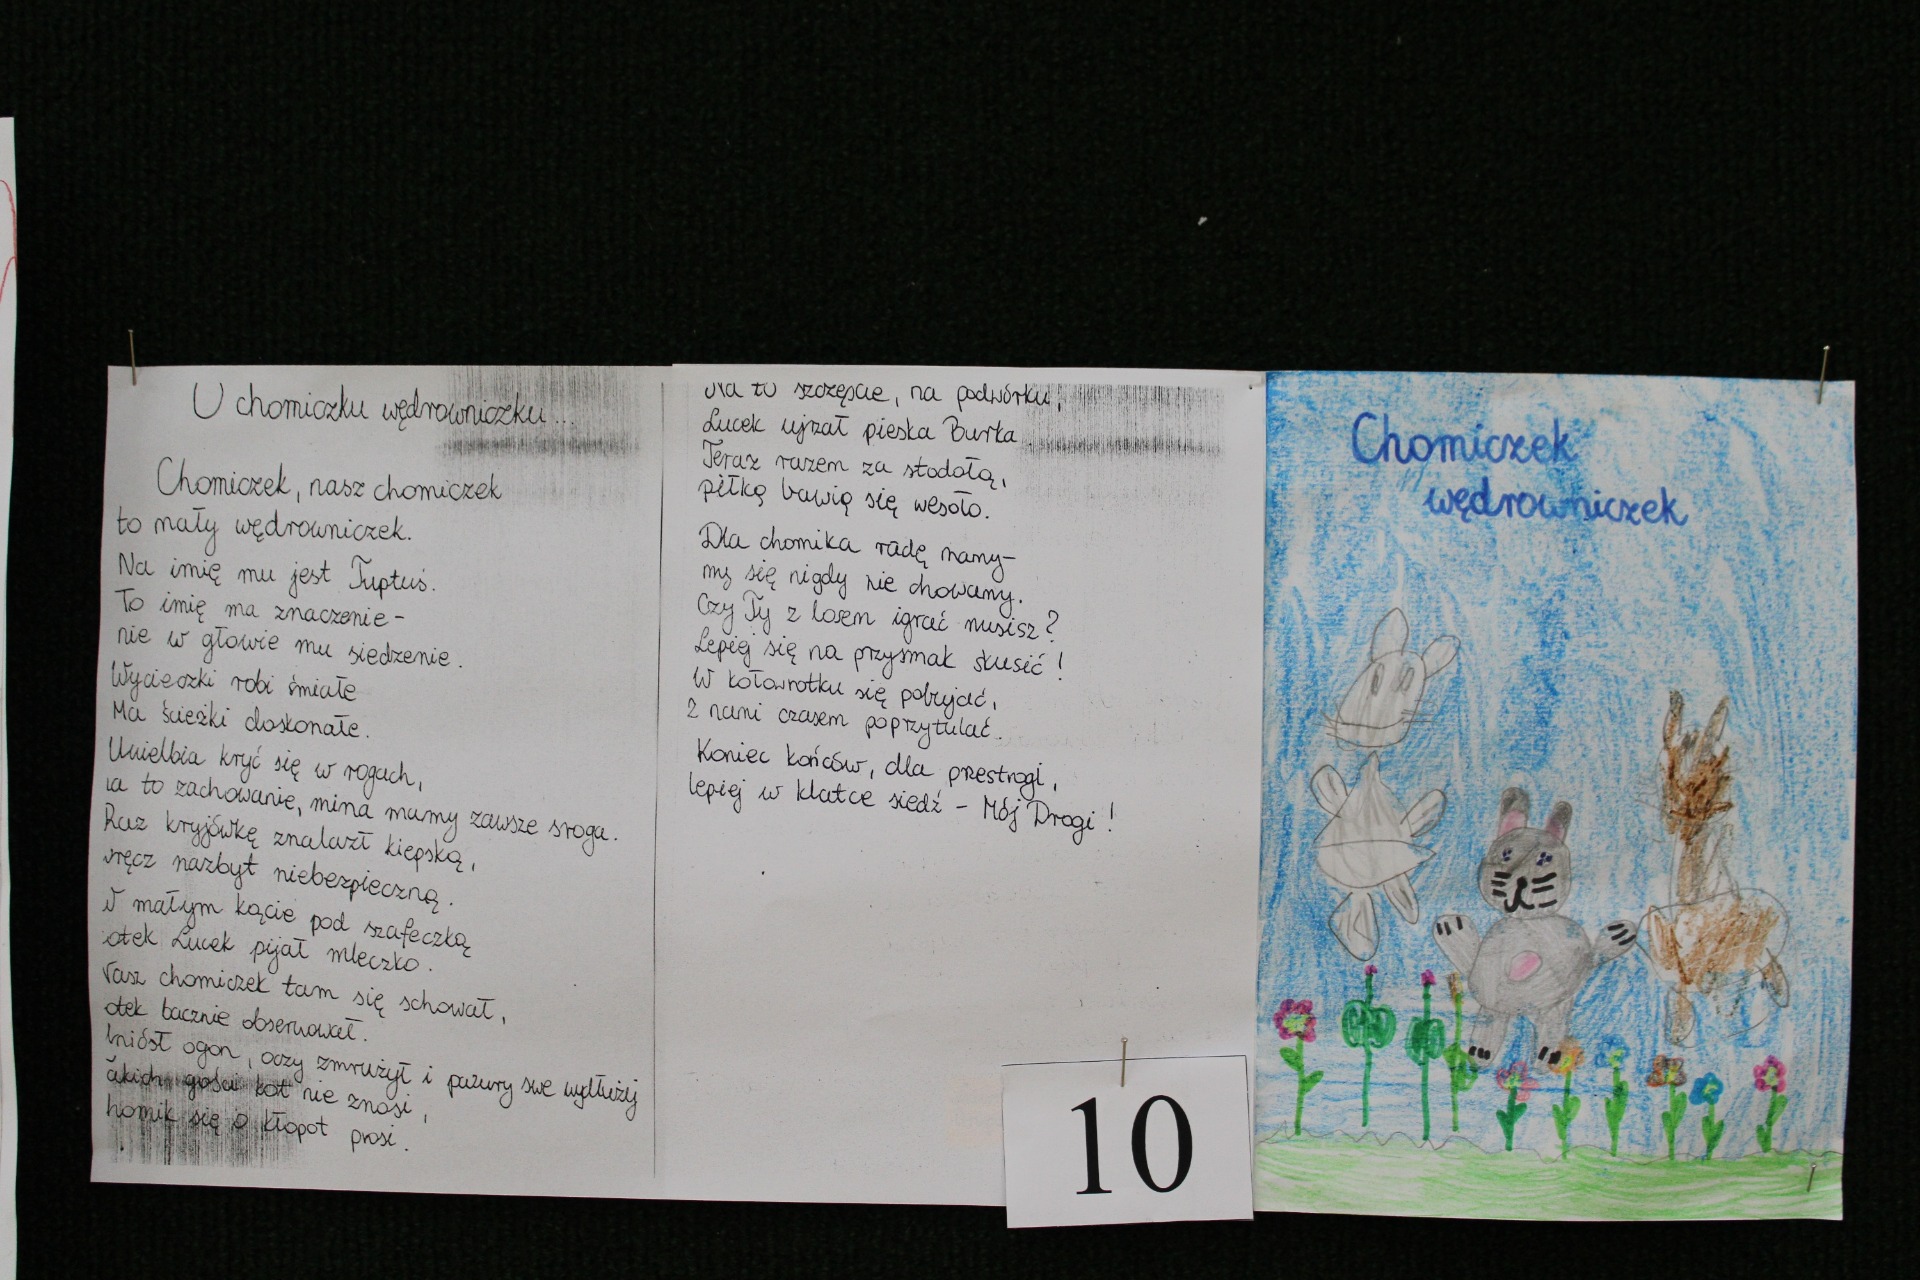 O chomiczku wędrowniczku...
Chomiczek, nasz chomiczek
to mały wędrowniczek.
Na imię mu jest Tuptuś.
To imię ma znaczenie -
nie w głowie mu siedzenie.
Wycieczki robi śmiałe
Ma ścieżki doskonałe.
Uwielbia kryć się w rogach,
na to zachowanie, mina mamy zawsze sroga.
Raz kryjówkę znalazł kiepską,
wręcz nazbyt niebezpieczną.
W małym kącie pod szafeczką
otek Lucek pijał mleczko.
Nasz chomiczek tam się schował,
otek bacznie obserwował.
niósł ogon, oczy zmrużył i pazury swe wydłużył
akich gości kot nie znosi,
homik się o kłopot prosi.
Na to szczęście, na podwórku,
Lucek ujrzał pieska Burka.
Teraz razem za stodołą,
piłką bawią się wesoło.
Dla chomika radę mamy-
my się nigdy nie chowamy.
Czy Ty z losem igrać musisz?
Lepiej się na przysmak skusić!
W kołowrotku się pobujać,
z nami czasem poprzytulać.
Koniec końców, dla przestrogi,
lepiej w klatce siedź - Mój Drogi!
10
Chomiczek
wędrowniczek